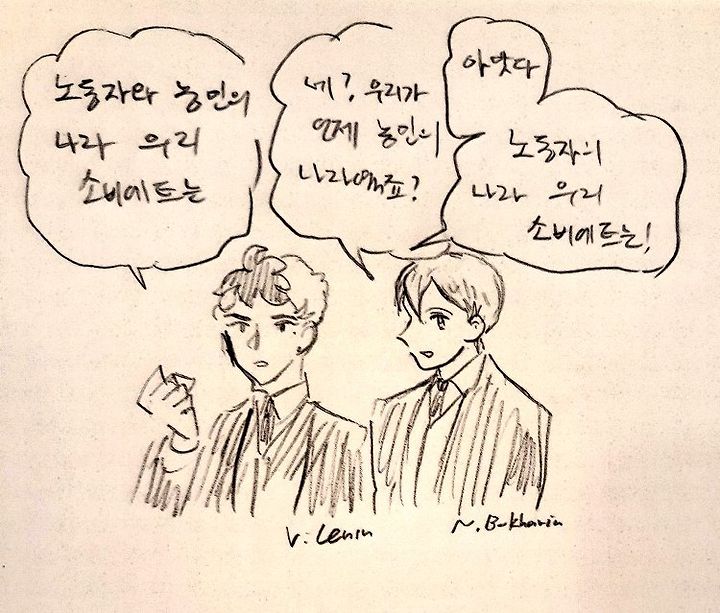 노동자와 농민의
나라 우리
소비에트는
네?, 우리가
언제 농민의
나라였죠?
아맞다
노동자의
나라 우리
소비에트는!
V. Lenin
N. Bukharin